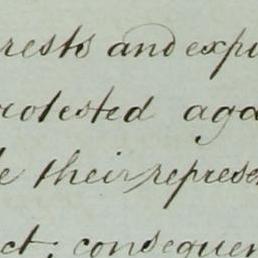 rests and expi
rotested aga
e their represe
ct, consequen